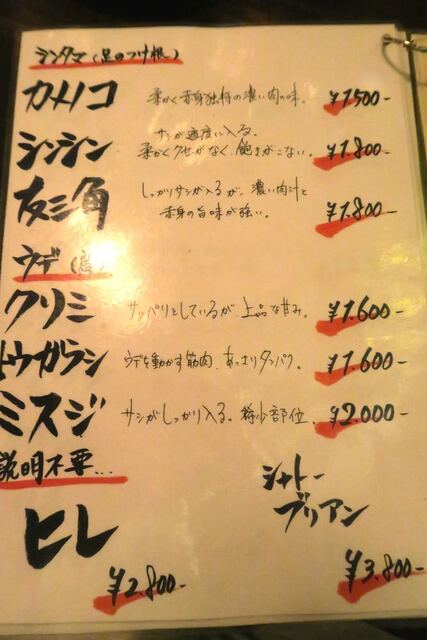 シンタマ(足のつけ根)
カメノコ 柔かく赤身独特の濃い肉の味。 ¥1500-
サシが適度に入る。
シンシン 柔かくクセがなく、飽きがこない。 ¥1.800-
しっかりサシが入るが、濃い肉汁と
友三角 赤身の旨味が強い。 ¥1.800-
ウデ(肩)
クリミ サッパリとしているが上品な甘み。 ¥1.600-
トウガラシ ウデを動かす筋肉、あっさりタンパク。 ¥1.600-
ミスジ サシがしっかり入る。稀少部位。 ¥2.000-
説明不要...
シャトー
ブリアン
ヒレ
¥2.800- ¥3.800-